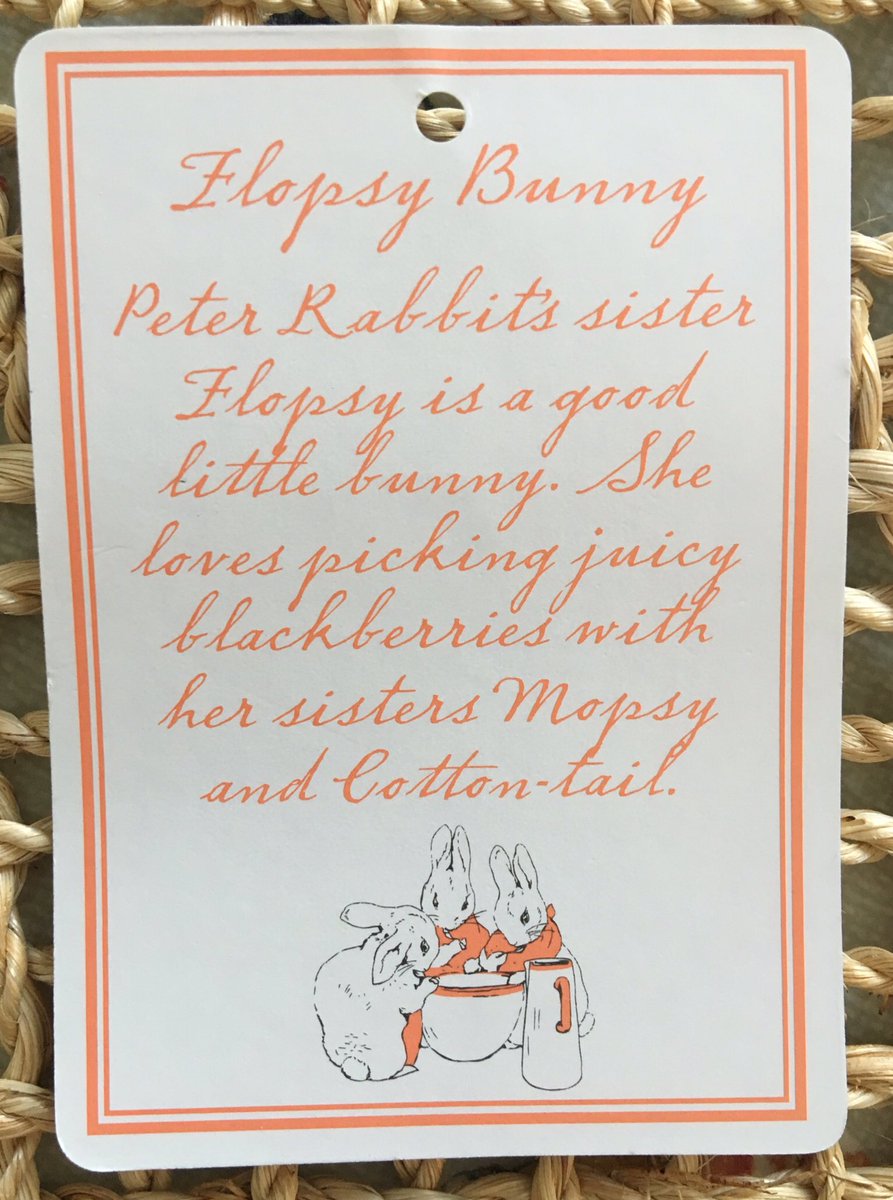 Flopsy Bunny
Peter Rabbit's sister
Flopsy is a good
little bunny. She
loves picking juicy
blackberries with
her sisters Mopsy
and Cotton-tail.